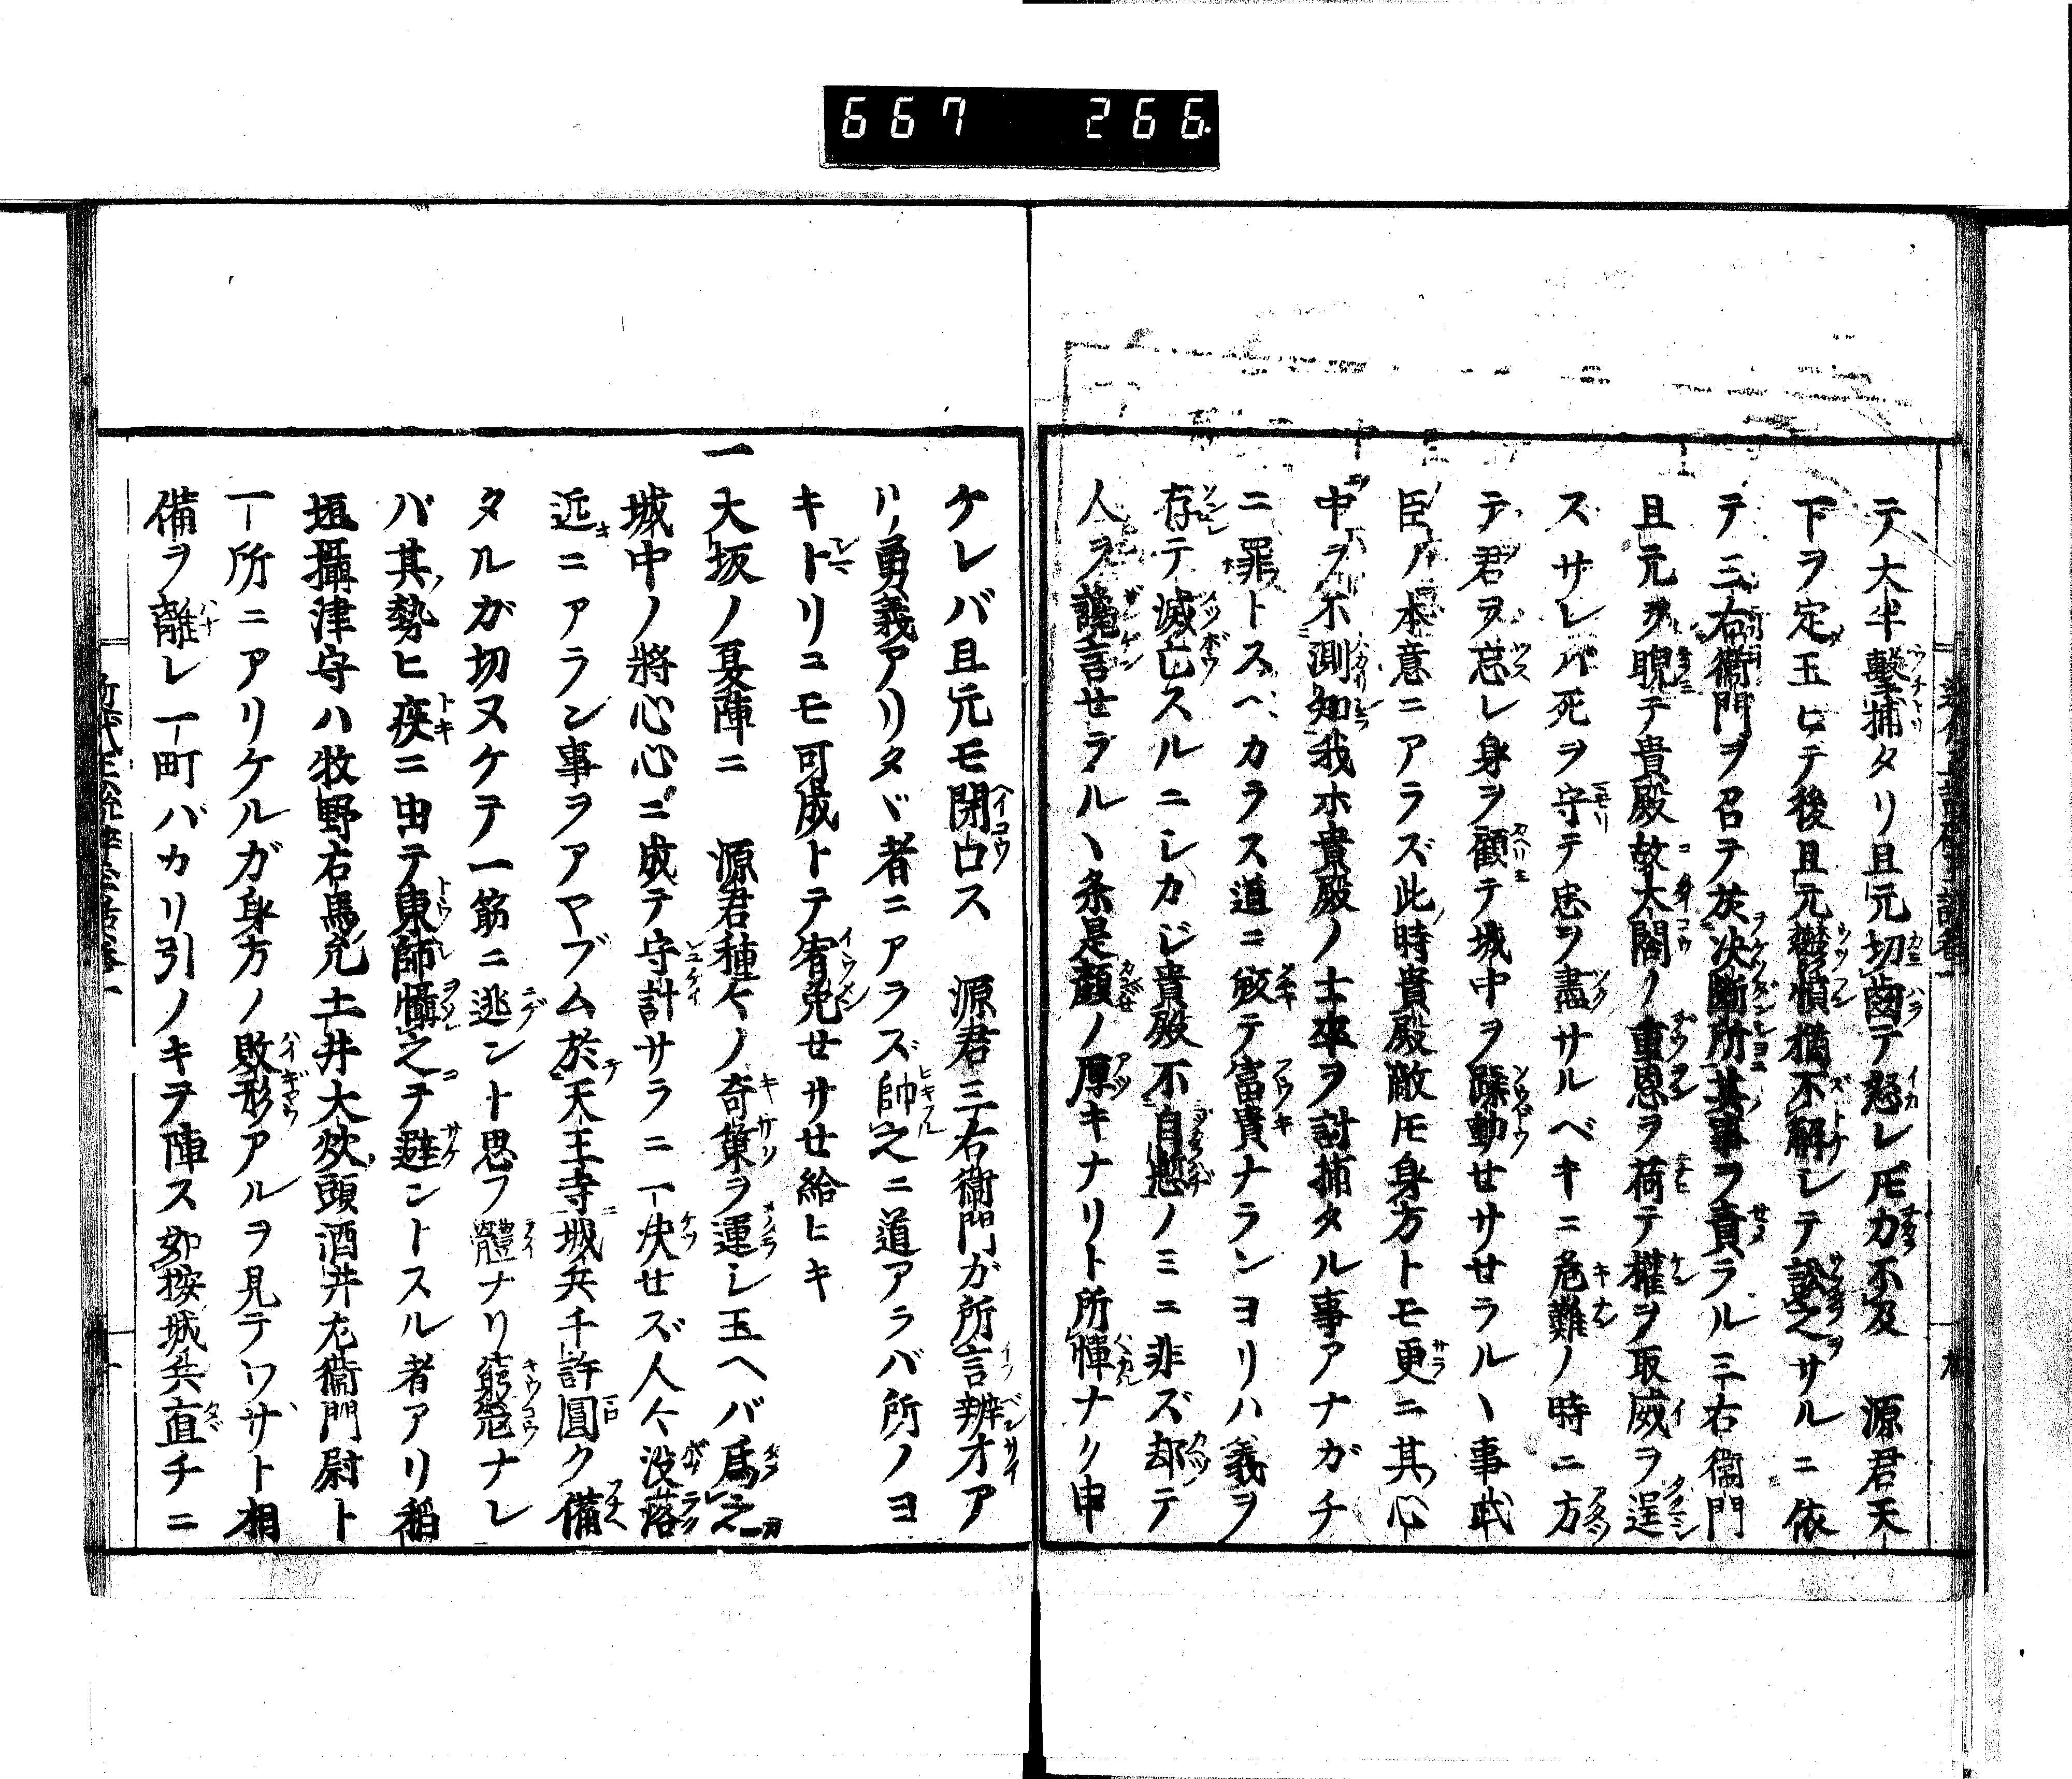 667 266.
テ大半擊捕タリ且元切齒テ怒レ𪜈力不及 源君天
下ヲ定メ玉ヒテ後且元鬱憤猶不解シテ訟之サルニ依
テ三右衞門ヲ召テ於决斷所其事ヲ責ラル三右衞門
且元ヲ睨テ貴殿故太閤ノ重恩ヲ荷テ權ヲ取威ヲ逞
スサレバ死ヲ守テ忠ヲ盡サルベキニ危難ノ時ニ方
テ君ヲ忘レ身ヲ顧テ城中ヲ躁動セサセラルヽ事武
臣ノ本意ニアラズ此時貴殿敵𪜈身方トモ更ニ其心
中ヲ不測知我ホ貴殿ノ士卒ヲ討捕タル事アナガチ
ニ罪トスヘカラス道ニ敓テ富貴ナランヨリハ義ヲ
存テ滅亡スルニシカジ貴殿不自慙ノミニ非ズ却テ
人ヲ讒言セラルヽ条是顏ノ厚キナリト所憚ナク申
ケレバ且元モ閉口ス 源君三右衞門ガ所言辨才ア
リ勇義アリタヾ者ニアラズ帥之ニ道アラバ所ノヨ
キトリコモ可成トテ宥免セサセ給ヒキ
一大坂ノ夏陣ニ 源君種々ノ奇策ヲ運シ玉ヘバ爲之
城中ノ將心心ニ成テ守計サラニ一决セズ人々没落
近ニアラン事ヲアヤブム於天王寺城兵千許圓ク備
タルガ切ヌケテ一筋ニ逃ント思フ體ナリ窮寇ナレ
バ其勢ヒ疾ニ由テ東師懾之チ避ントスル者アリ稲
垣攝津守ハ牧野右馬允土井大炊頭酒井左衞門尉ト
一所ニアリケルガ身方ノ敗形アルヲ見テワサト相
備ヲ離レ一町バカリ引ノキヲ陣ス如按城兵直チニ